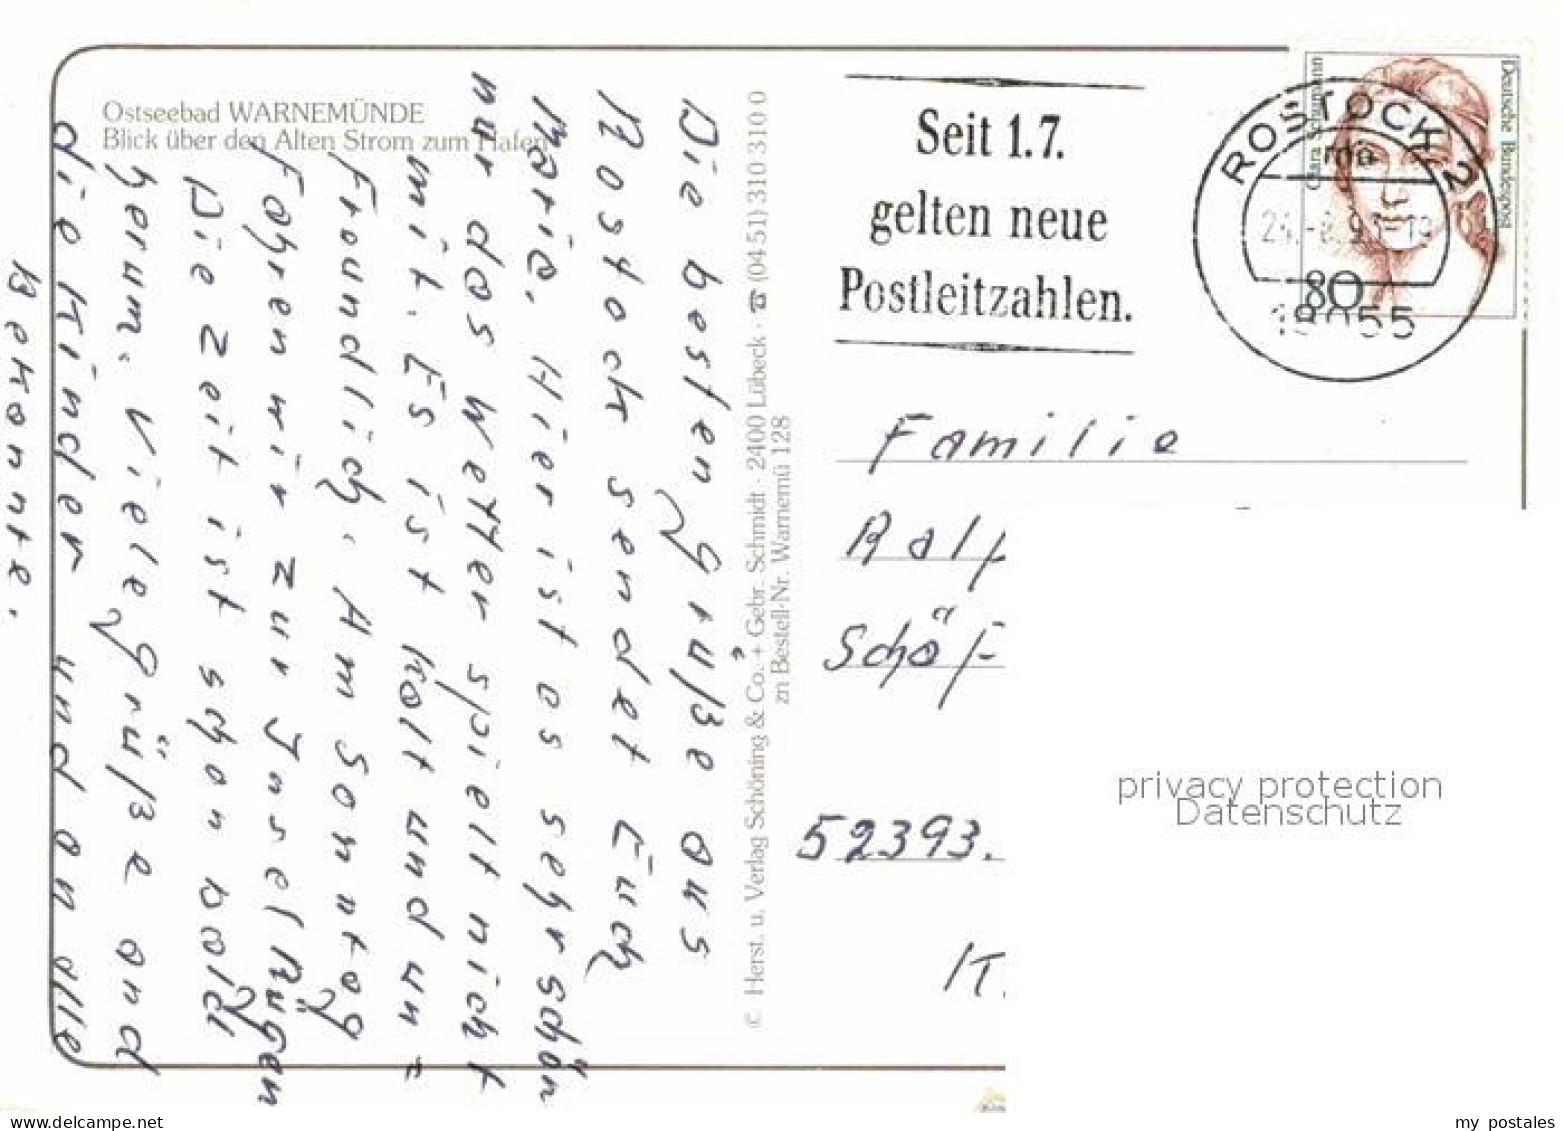 Ostseebad WARNEMÜNDE
Blick über den Alten Strom zum Hafen
Die besten Grüße aus
Rostock sendet Euch
Marie. Hier ist es sehr schön
nur das Wetter spielt nicht
mit. Es ist kalt und un=
freundlich. Am Sonntag
fahren wir zur Insel Rügen
Die Zeit ist schon bald
herum. Viele Grüße and
die Kinder und an alle
Bekannte.
© Herst. u. Verlag Schöning & Co. + Gebr. Schmidt · 2400 Lübeck · ☎ (04 51) 310 310 0
zn Bestell-Nr. Warnemü 128
Seit 1.7.
gelten neue
Postleitzahlen.
ROSTOCK 2
mb
18055
Clara Schumann
Deutsche Bundespost
80
Familie
Ralf
Schäf
52393.
K.
privacy protection
Datenschutz
delcampe.net
my_postales